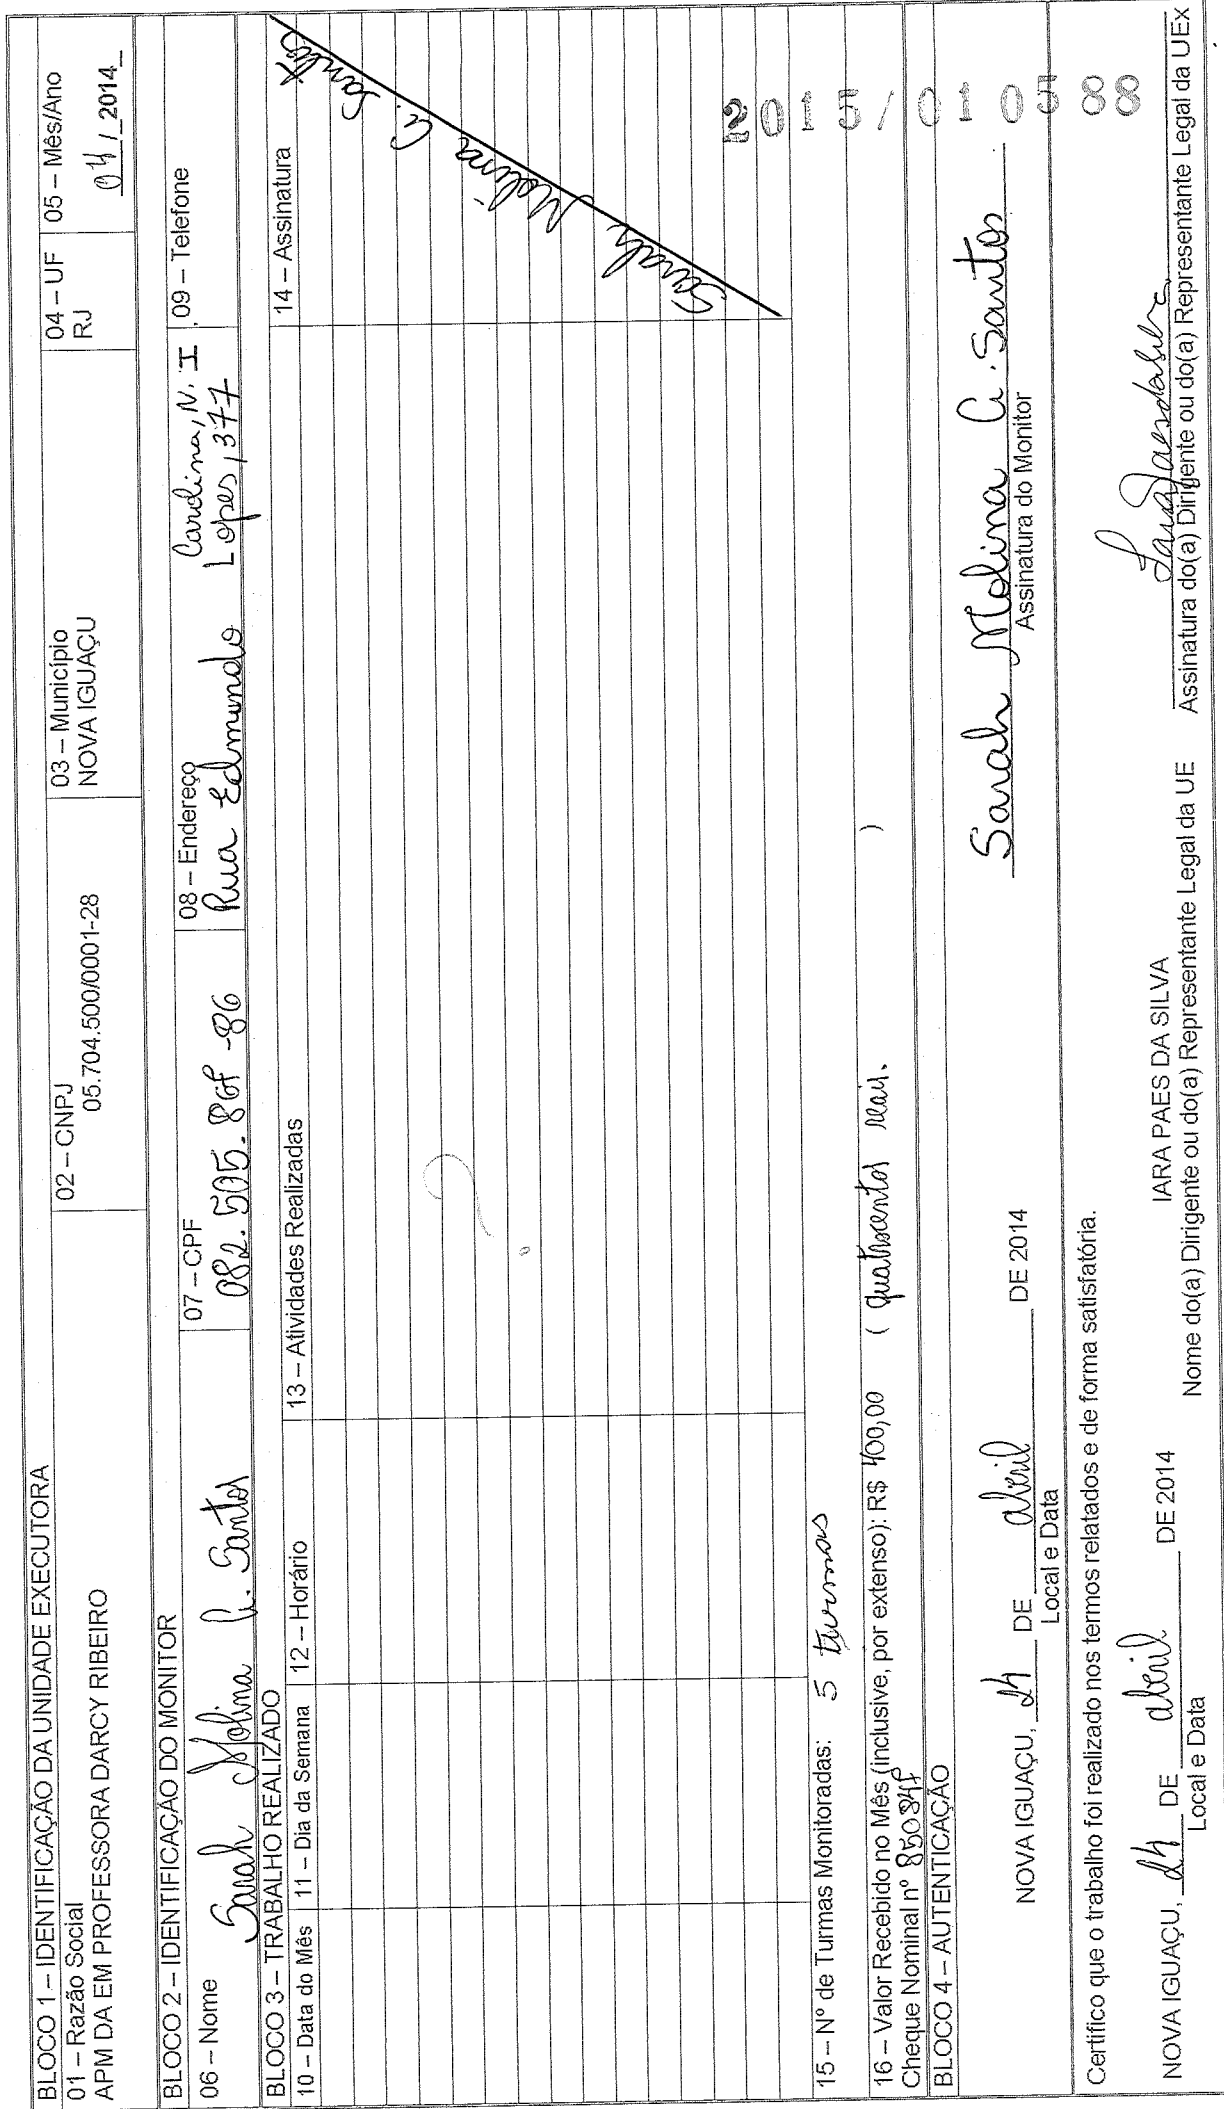 BLOCO 1 – IDENTIFICAÇÃO DA UNIDADE EXECUTORA
01 – Razão Social
APM DA EM PROFESSORA DARCY RIBEIRO
02 – CNPJ
05.704.500/0001-28
03 – Município
NOVA IGUAÇU
04 – UF
RJ
05 – Mês/Ano
04 / 2014
BLOCO 2 – IDENTIFICAÇÃO DO MONITOR
06 – Nome
Sarah Molina C. Santos
07 – CPF
08 – Endereço
Rua Edmundo Lopes, 377
Cardina, N. I
09 – Telefone
BLOCO 3 – TRABALHO REALIZADO
10 – Data do Mês
11 – Dia da Semana
12 – Horário
13 – Atividades Realizadas
14 – Assinatura
Sarah Molina C. Santos
?
15 – Nº de Turmas Monitoradas: 5 turmas
16 – Valor Recebido no Mês (inclusive, por extenso): R$ 400,00 ( quatrocentos reais. )
Cheque Nominal nº
BLOCO 4 – AUTENTICAÇÃO
NOVA IGUAÇU, 24 DE abril DE 2014
Local e Data
Sarah Molina C. Santos
Assinatura do Monitor
2015/010588
Certifico que o trabalho foi realizado nos termos relatados e de forma satisfatória.
NOVA IGUAÇU, 24 DE abril DE 2014
Local e Data
IARA PAES DA SILVA
Nome do(a) Dirigente ou do(a) Representante Legal da UE
Iara Paes da Silva
Assinatura do(a) Dirigente ou do(a) Representante Legal da UEx